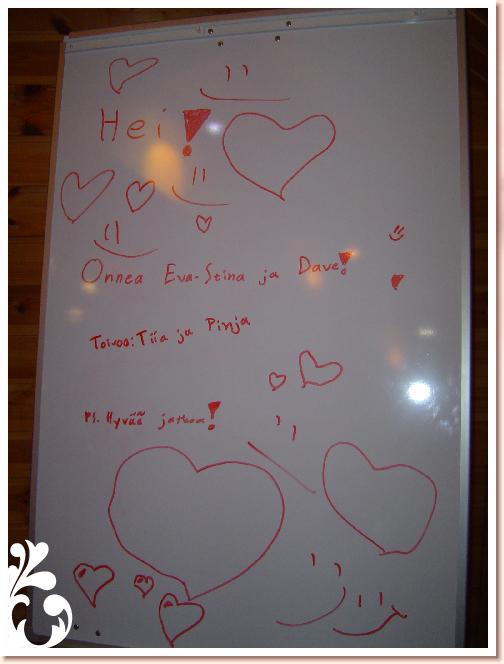 Hei!
Onnea Eva-Stina ja Dave!
Toivoo: Tiia ja Pinja
Ps. Hyvää jatkoa!